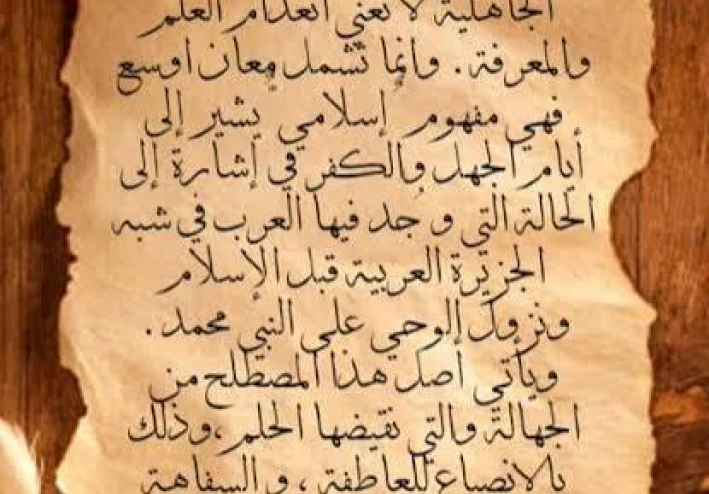 الجاهلية لا تعني انعدام العلم
والمعرفة. وانما تشمل معان اوسع
فهي مفهوم إسلامي يشير إلى
أيام الجهل والكفر في إشارة إلى
الحالة التي وجد فيها العرب في شبه
الجزيرة العربية قبل الإسلام
ونزول الوحي على النبي محمد.
ويأتي أصل هذا المصطلح من
الجهالة والتي نقيضها الحلم، وذلك
بالانصياع للعاطفة، والسفاهة